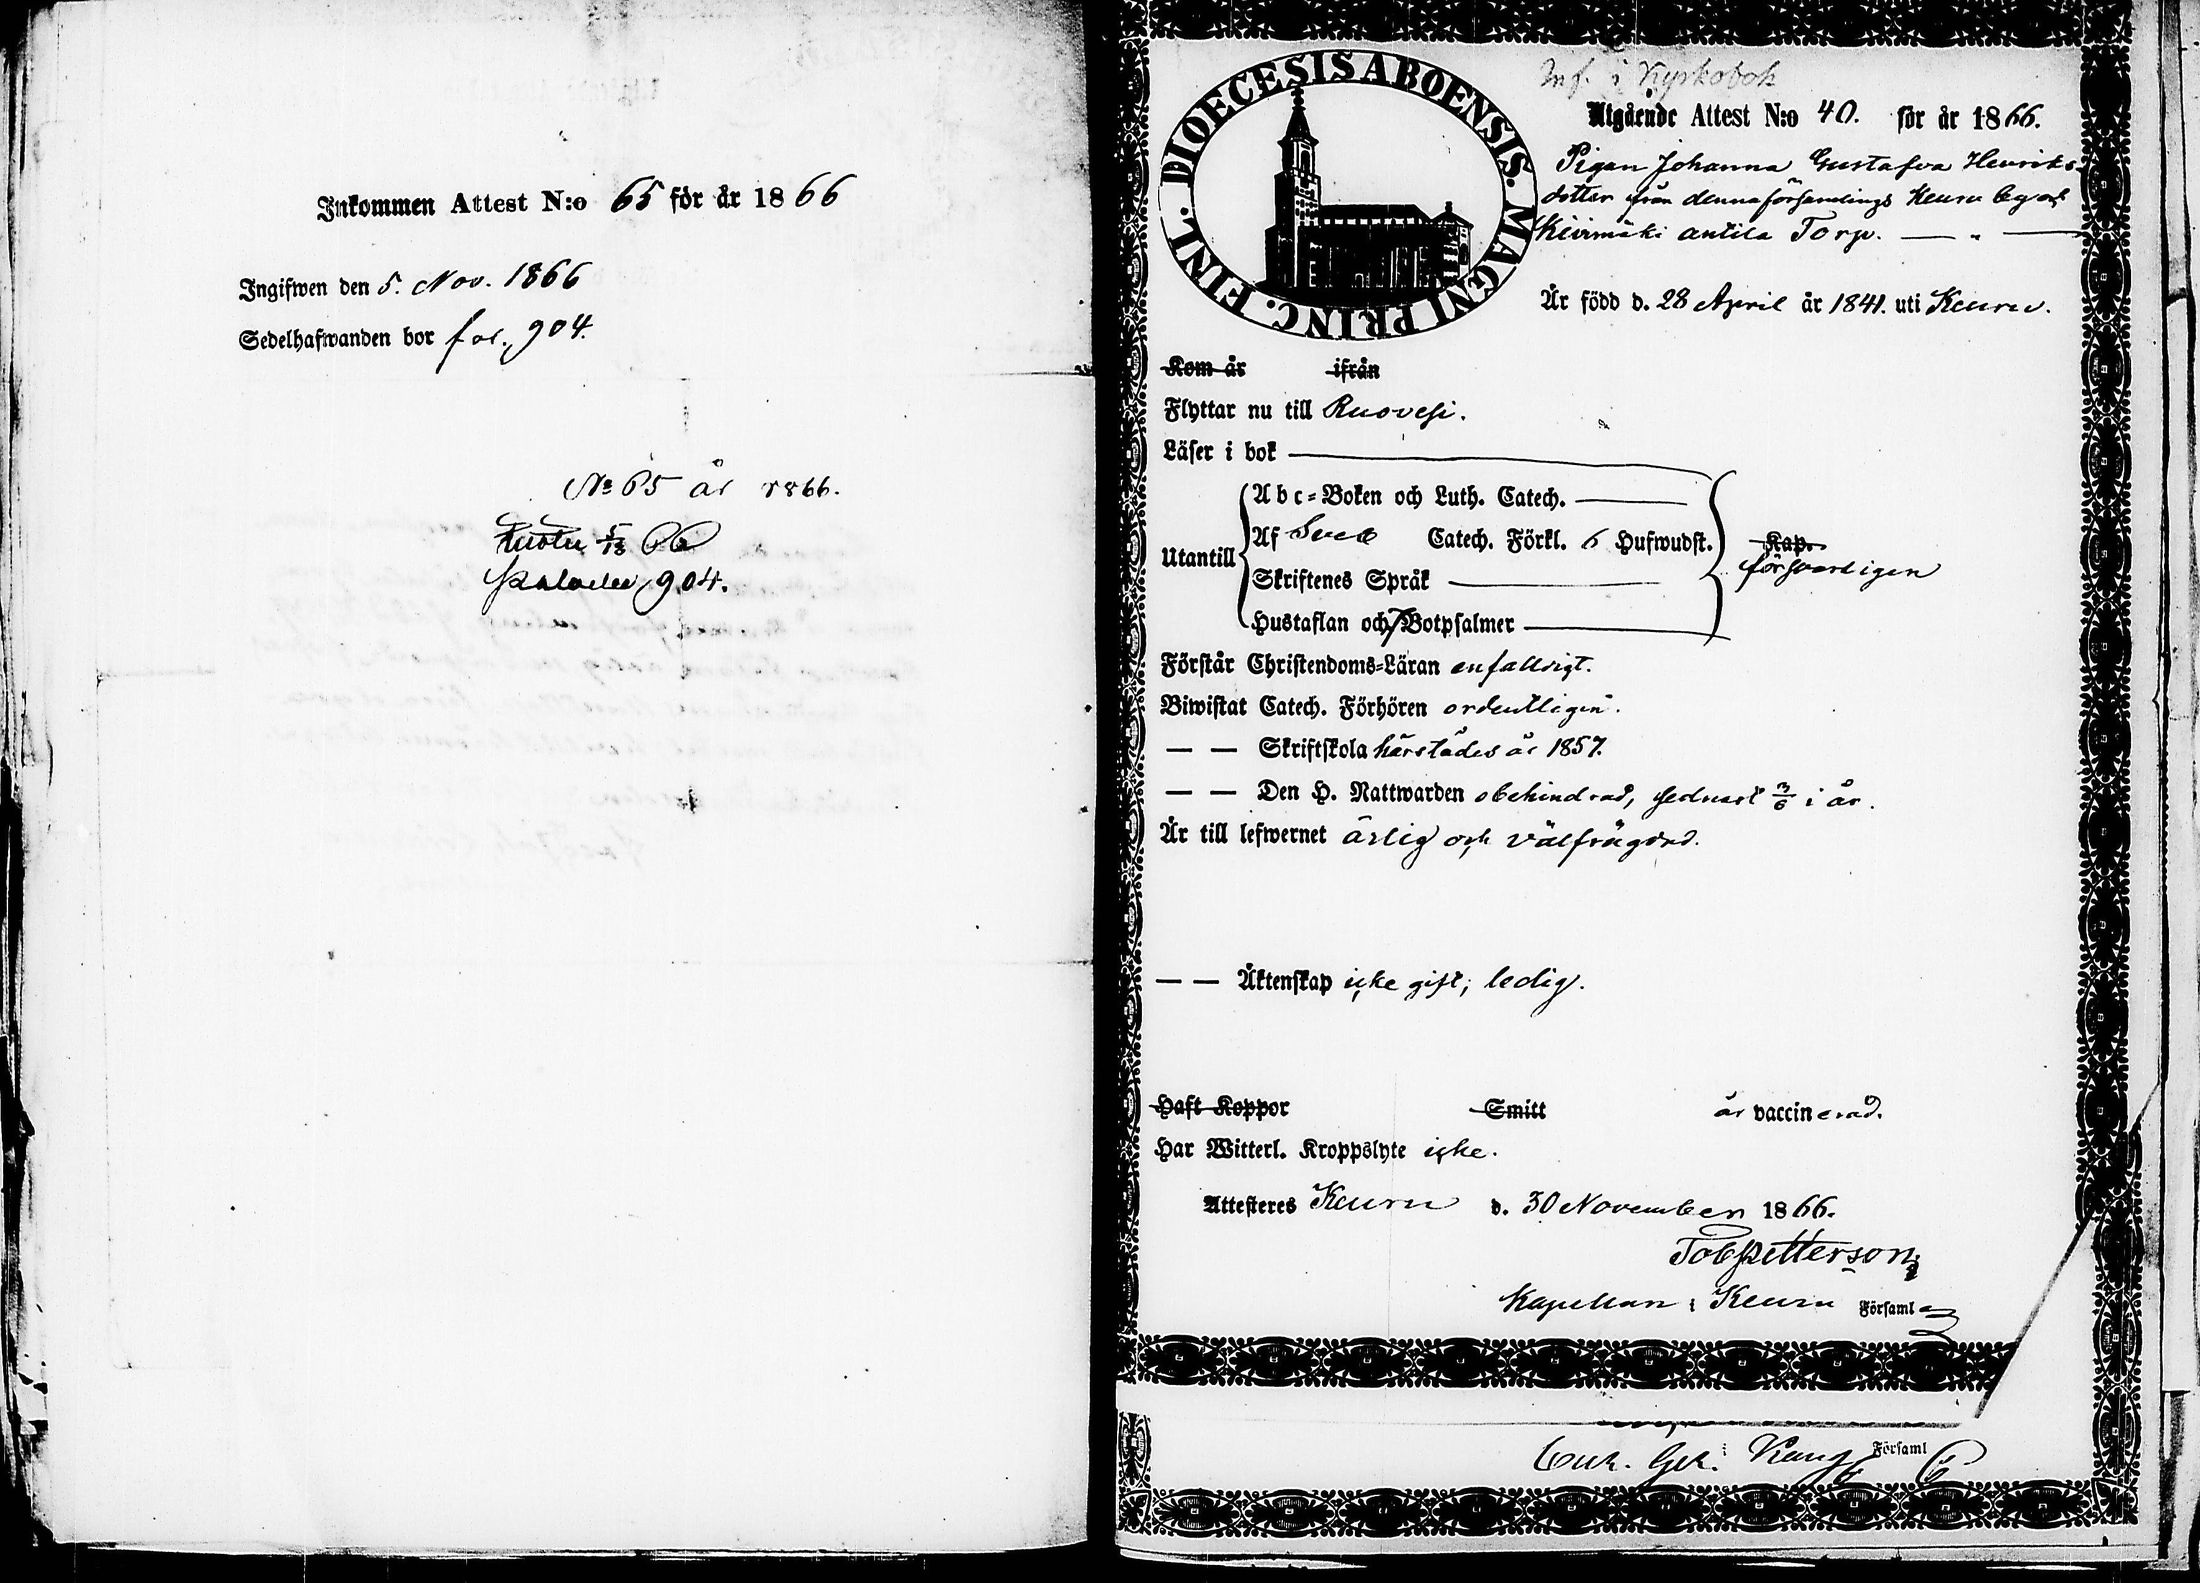 Inkommen Attest N:o 65 för år 1866
Ingifwen den 5. Nov. 1866
Sedelhafwanden bor fol. 904.
No 65 år 1866.
904.
DIOECESIS ABOENSIS. MAGNI PRINC. FINL.
Inf. i Kyrkobok
Utgående Attest N:o 40. för år 1866.
Pigan Johanna Gustafva Henriks-
dotter från denna församlings Keuru by och
Kivimäki Antila Torp.
Är född d. 28 April år 1841. uti Keuru.
Kom år ifrån
Flyttar nu till Ruovesi.
Läser i bok
Utantill
Abc-Boken och Luth. Catech.
Af Sveb Catech. Förkl. 6 Hufwudst.
Skriftenes Språk
Hustaflan och 7 Botpsalmer
Kap.
försvarligen
Förstår Christendoms-Läran enfalldigt.
Biwistat Catech. Förhören ordentligen.
— — Skriftskola härstädes år 1857.
— — Den H. Nattwarden obehindrad, sednast 3/6 i år.
Är till lefwernet ärlig och välfrägdad.
— — Äktenskap icke gift; ledig.
Haft Koppor Smitt är vaccinerad.
Har Witterl. Kroppslyte icke.
Attesteres Keuru d. 30 November 1866.
Tob Petterson
Kapellan i Keuru Församl
i Församl